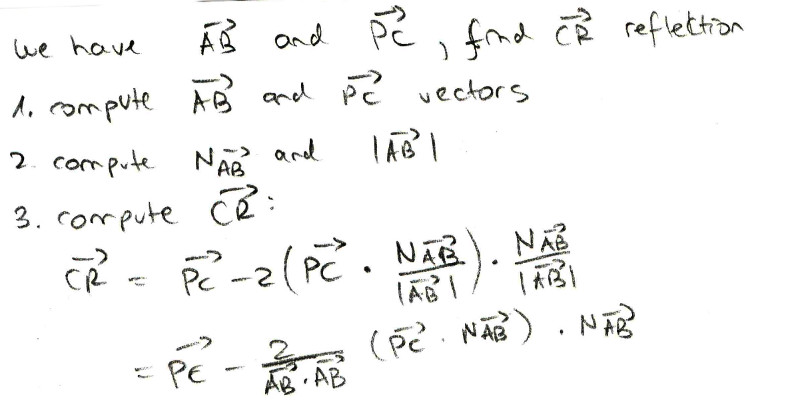 We have $\overrightarrow{AB}$ and $\overrightarrow{PC}$, find $\overrightarrow{CR}$ reflection
1. compute $\overrightarrow{AB}$ and $\overrightarrow{PC}$ vectors
2. compute $N\overrightarrow{AB}$ and $|\overrightarrow{AB}|$
3. compute $\overrightarrow{CR}$:
$\overrightarrow{CR} = \overrightarrow{PC} - 2 \left( \overrightarrow{PC} \cdot \frac{N\overrightarrow{AB}}{|\overrightarrow{AB}|} \right) \cdot \frac{N\overrightarrow{AB}}{|\overrightarrow{AB}|}$
$= \overrightarrow{PC} - \frac{2}{\overrightarrow{AB} \cdot \overrightarrow{AB}} (\overrightarrow{PC} \cdot N\overrightarrow{AB}) \cdot N\overrightarrow{AB}$